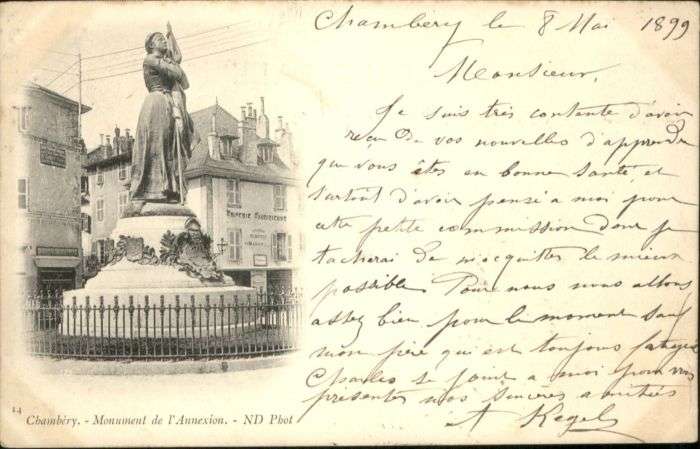 Chambéry le 8 Mai 1899
Monsieur,
Je suis très contente d'avoir
reçu de vos nouvelles d'apprendre
que vous êtes en bonne santé et
surtout d'avoir pensé a moi pour
cette petite commission dont je
tacherai de m'acquitter le mieux
possible. Pour nous nous allons
assez bien pour le moment sauf
mon père qui est toujours fatigué
Charles se joint a moi pour vous
présenter nos sincères amitiés
A Kegel
14
Chambéry. - Monument de l'Annexion. - ND Phot